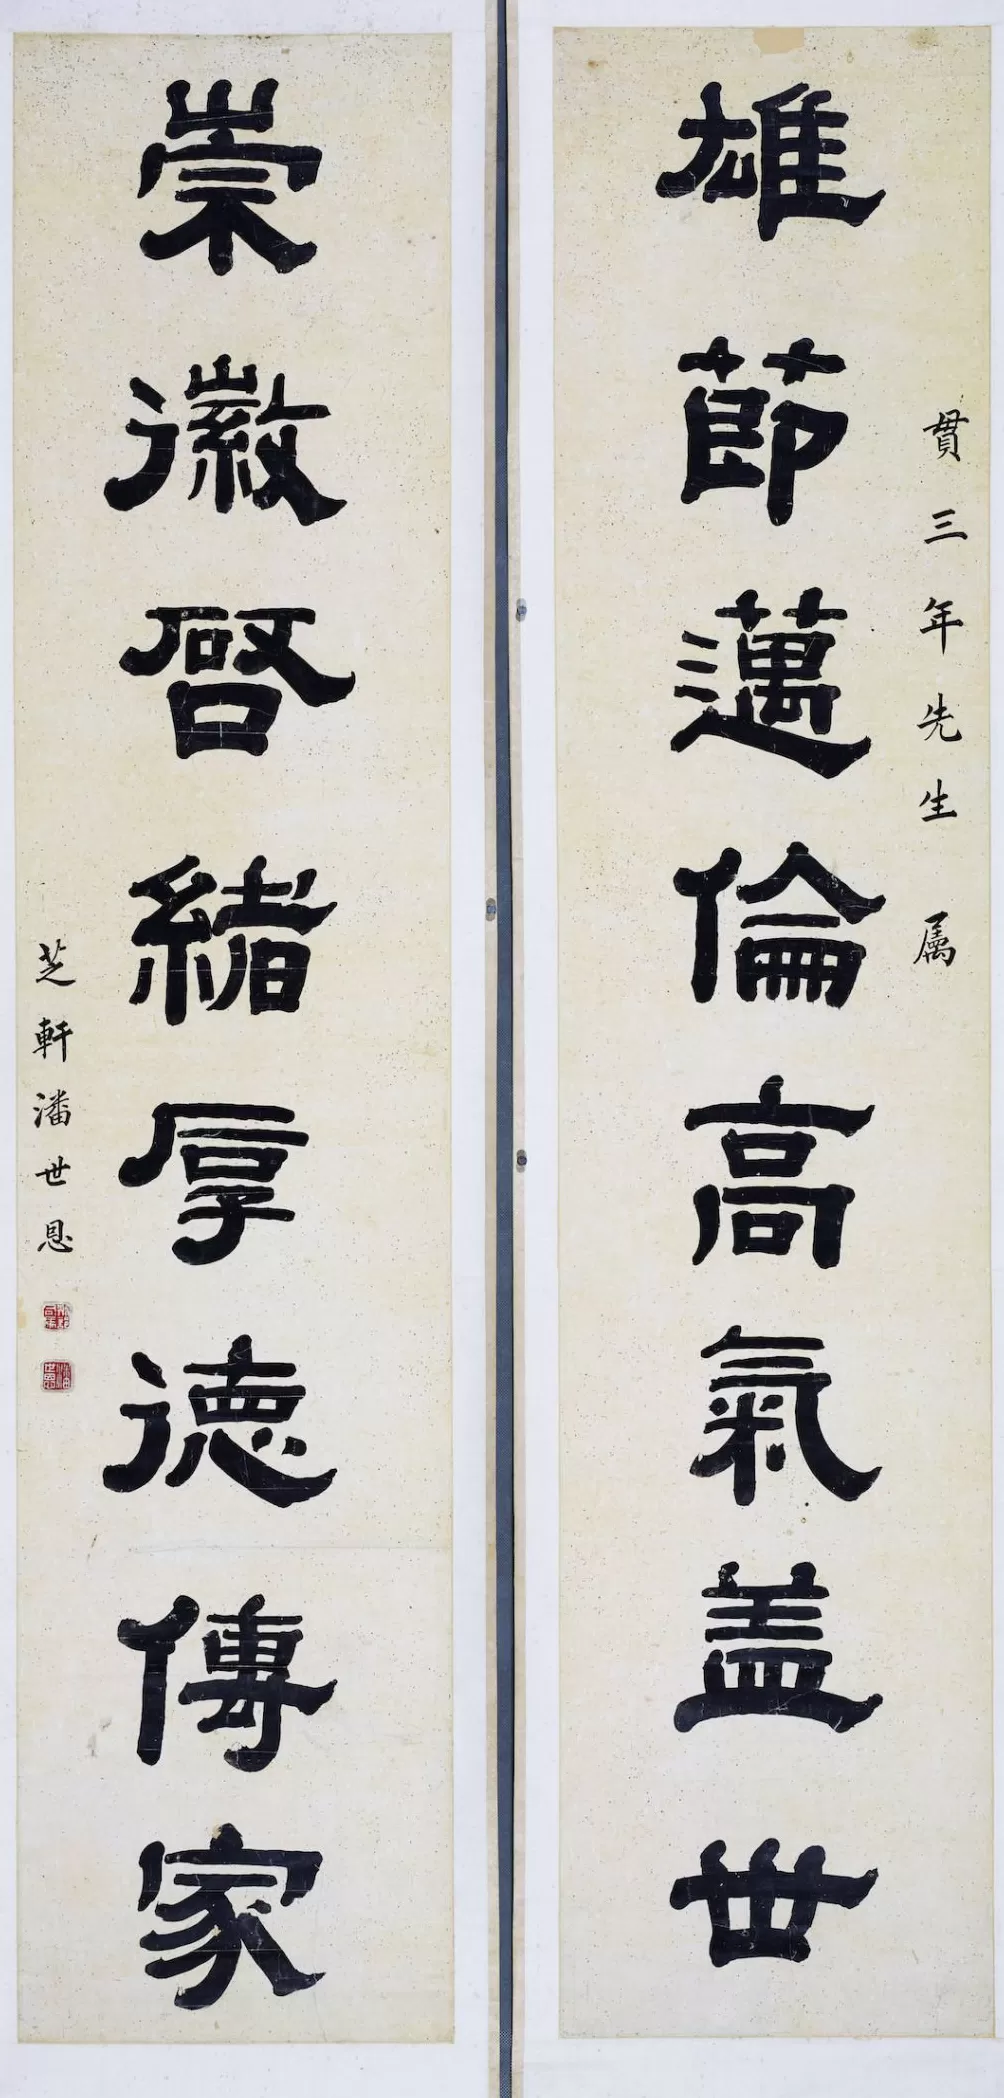 貫三年先生属
雄節邁倫高氣蓋世
崇徽啓緒厚德傳家
芝軒潘世恩
潘世恩